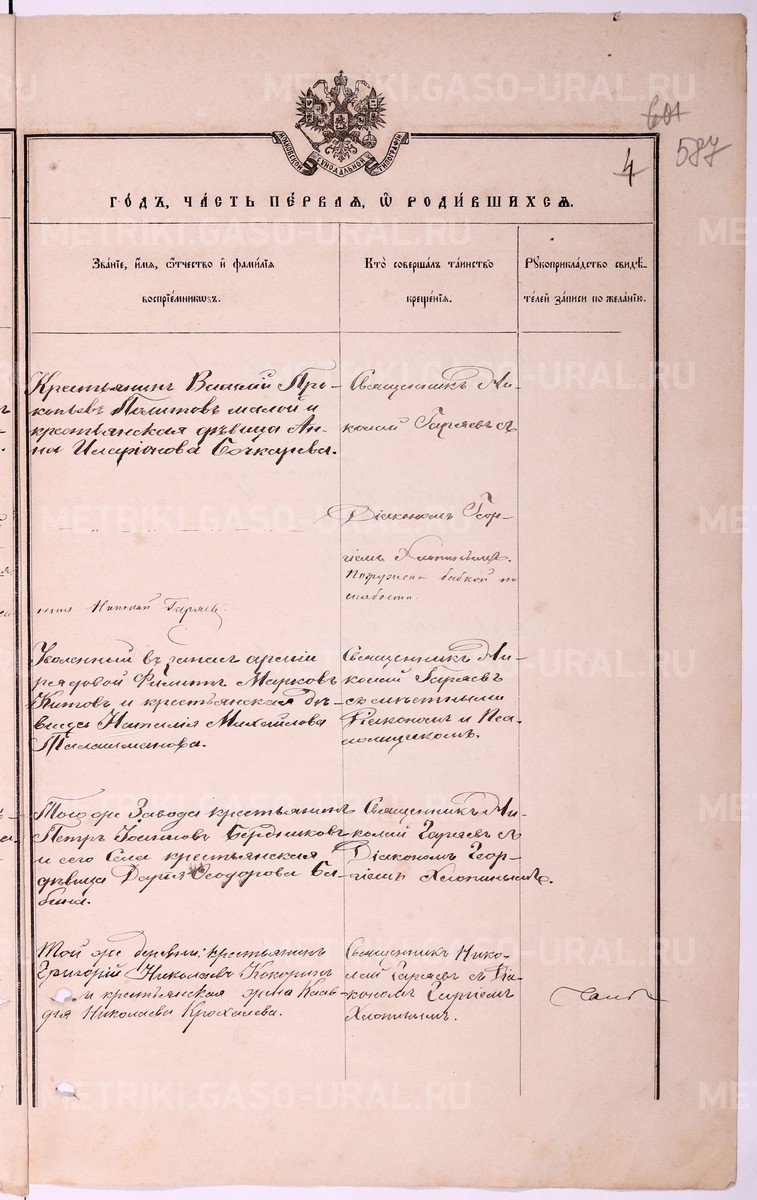 METRIKI.GASO-URAL.RU
601
587
4
МОСКОВСКОЙ СѴНОДАЛЬНОЙ ТИПОГРАФІИ
ГО́ДЪ, ЧА́СТЬ ПЕ́РВАѦ, Ѡ҆ РОДИ́ВШИХСѦ.
Зва́нїе, и҆́мѧ, ѻ҆́тчество и҆ фами́лїѧ
воспрїе́мникѡвъ.
Кто̀ соверша́лъ та́инство
креще́нїѧ.
Рꙋкоприкла́дство свидѣ́-
телей за́писи по жела́нїю.
Крестьянинъ Василій Про-
копьевъ Политовъ малой и
крестьянская дѣвица Ан-
на Иларіонова Бочкарева.
Священникъ Ни-
колай Гаряевъ съ
Діакономъ Геор-
гіемъ Хлопинымъ.
Погружень бабкой по
слабости.
Николай Гаряев
Уволенный въ запасъ арміи
рядовой Филиппъ Марковъ
Китовъ и крестьянская дѣ-
вица Наталія Михайлова
Талашманова.
Священникъ Ни-
колай Гаряевъ
съ мѣстными
Діакономъ и Пса-
ломщикомъ.
Того же Завода крестьянинъ
Петръ Іоанновъ Бердниковъ
и сего Села крестьянская
дѣвица Дарія Ѳеодорова Ба-
бина.
Священникъ Ни-
колай Гаряевъ съ
Діакономъ Геор-
гіемъ Хлопинымъ.
Той же деревни: крестьянинъ
Григорій Николаевъ Кокоринъ
и крестьянская жена Клав-
дія Николаева Крохалева.
Священникъ Нико-
лай Гаряевъ съ Діа-
кономъ Георгіемъ
Хлопинымъ.